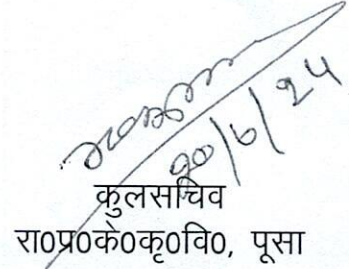 १०/६/२५
कुलसचिव
रा०प्र०के०कृ०वि०, पूसा